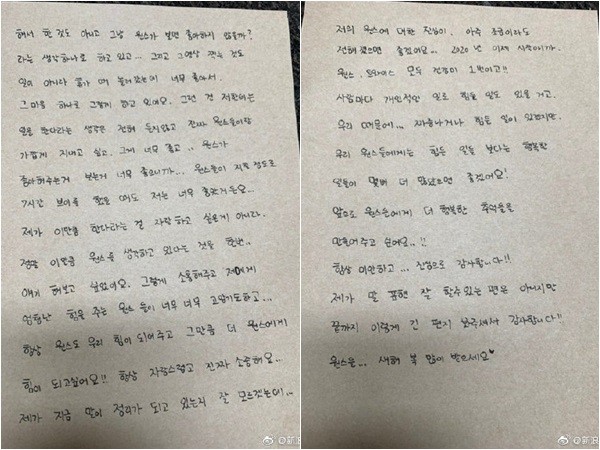 해서 한 것도 아니고 그냥 원스가 보면 좋아하지 않을까?
라는 생각 하나로 하고 있고... 그리고 그 영상 찍는 것도
일이 아니라 휴가 때 놀러갔는데 너무 좋아서.
그 마음 하나로 그렇게 하고 있어요. 그런 걸 저한테는
일을 한다라는 생각은 전혀 들지않고 진짜 원스들이랑
가깝게 지내고 싶고. 그게 너무 좋고.. 원스가
좋아해주는거 보는거 너무 좋으니까... 원스들이 지칠 정도로
7시간 브이앱 했을 때도 저는 너무 좋았거든요...
제가 이만큼 한다라는 걸 자랑 하고 싶은게 아니라.
정말 이만큼 원스를 생각하고 있다는 것을 한번..
얘기 해보고 싶었어요. 그렇게 소통해주고 저에게
엄청난 힘을 주는 원스 들이 너무 너무 고맙기도하고...
항상 원스도 우리 힘이 되어주고 그만큼 더 원스에게
힘이 되고싶어요!! 항상 자랑스럽고 진짜 소중해요..
제가 지금 말이 정리가 되고 있는지 잘 모르겠는데...
저희 원스에 대한 진심이. 아주 조금이라도
전해졌으면 좋겠어요... 2020 년 이제 시작이니까.
원스. 트와이스 모두 건강이 1번이고!!
사람마다 개인적인 일로 힘들 일도 있을 거고.
우리 때문에... 짜증나거나 힘든 일이 있겠지만.
우리 원스들에게는 힘든 일들 보다는 행복한
일들이 몇배 더 많았으면 좋겠어요!
앞으로 원스들에게 더 행복한 추억들을
만들어주고 싶어요..!!
항상 미안하고... 진심으로 감사합니다!!
제가 말 표현 잘 할수있는 편은 아니지만
끝까지 이렇게 긴 편지 봐주셔서 감사합니다!!
원스들... 새해 복 많이 받으세요♥
@新浪
@新浪